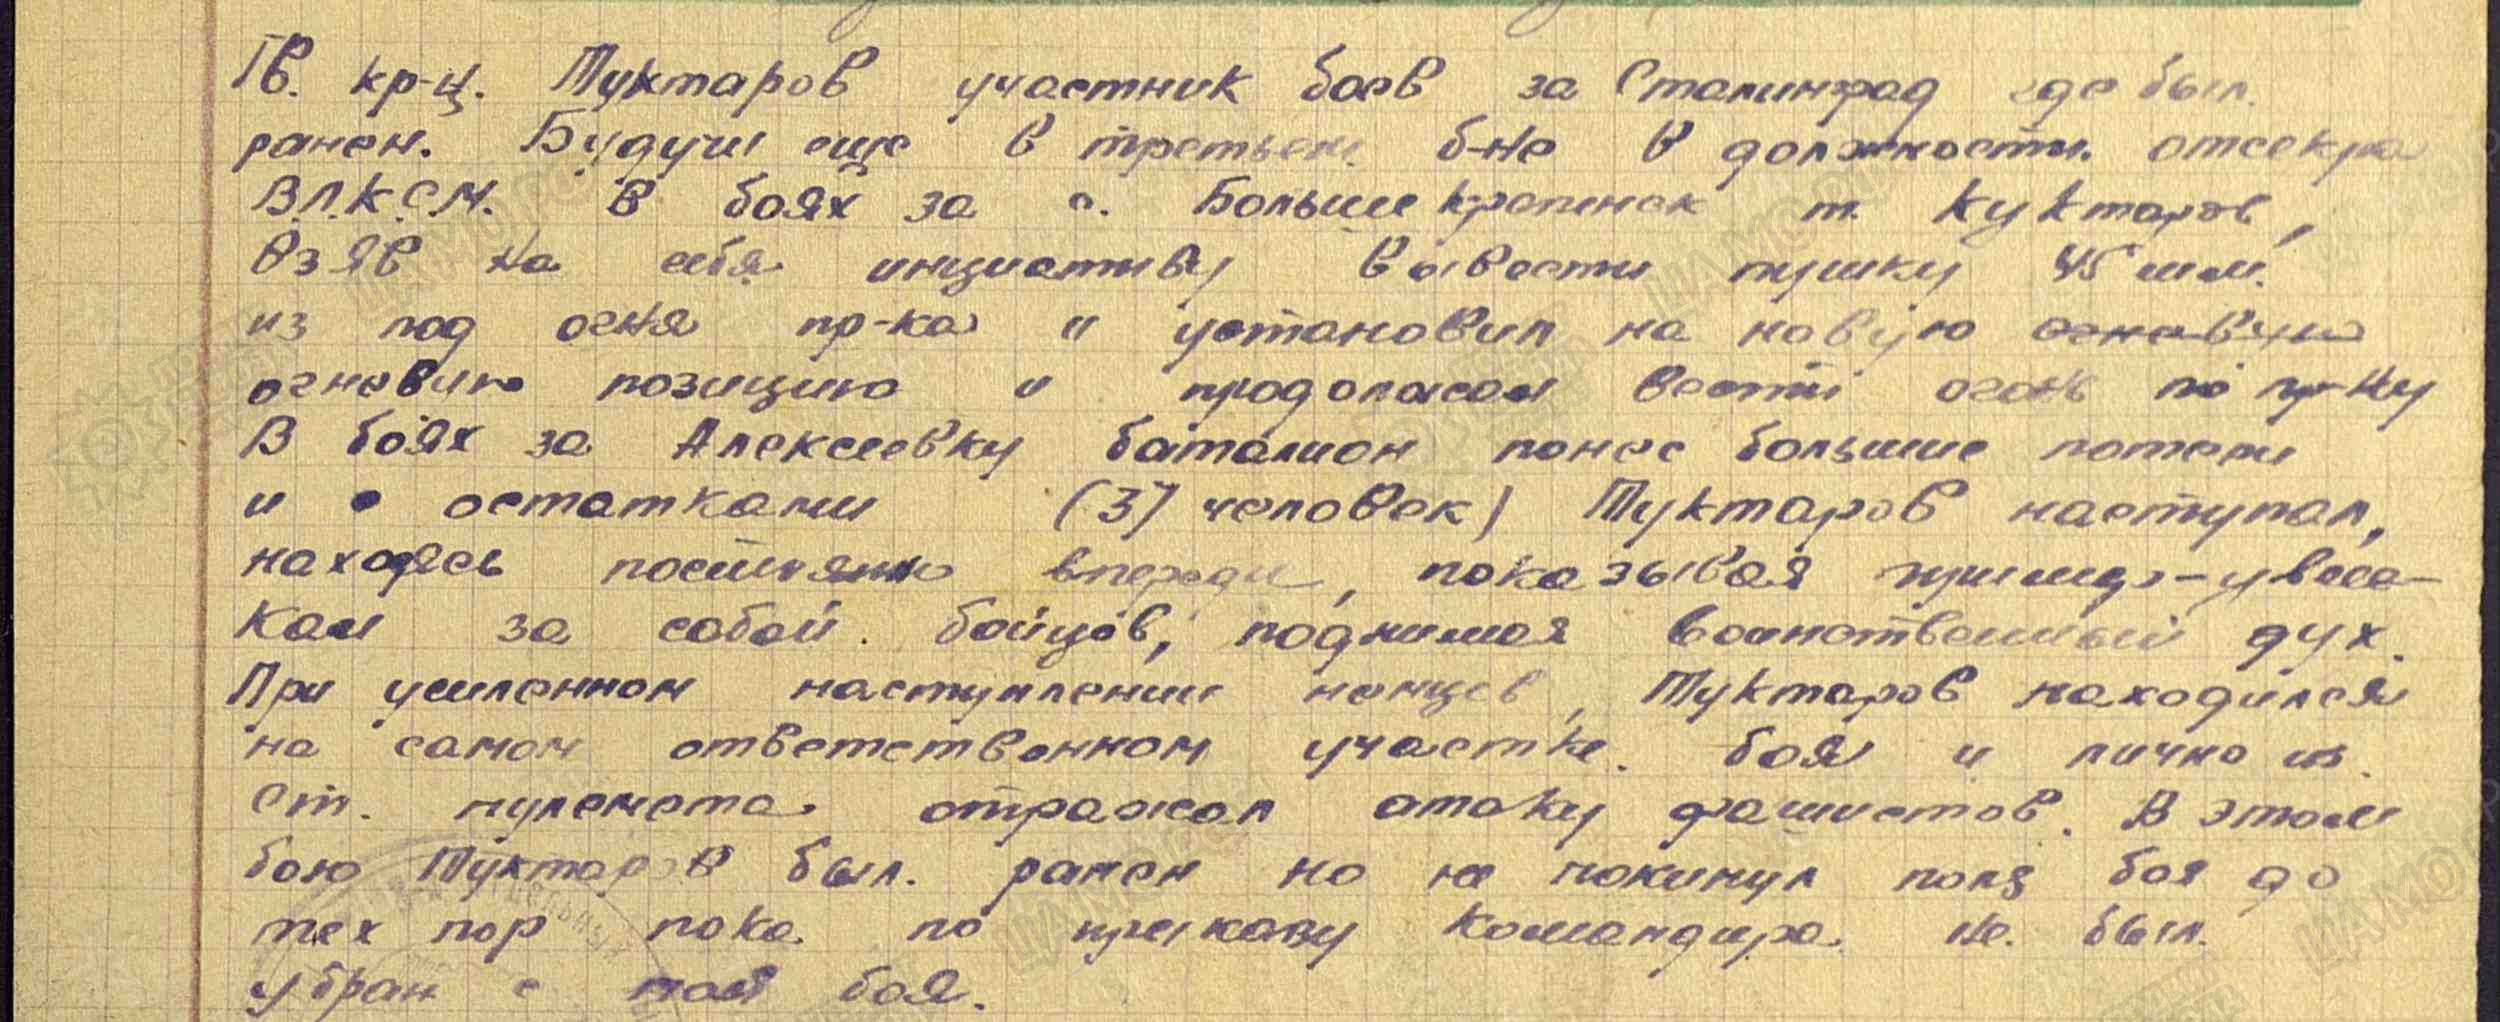 Гв. кр-ц. Туктаров участник боев за Сталинград где был
ранен. Будучи еще в третьем б-не в должности отсекра
В.Л.К.С.М. В боях за с. Больше Крепинск т. Куктаров,
взяв на себя инциативу вывести пушку 45 мм.
из под огня пр-ка и установил на новую огневую
огневую позицию и продолжал вести огонь по пр-ку
В боях за Алексеевку баталион понес большие потери
и с остатками (37 человек) Туктаров наступал,
находясь постоянно впереди, показывая
за собой бойцов, поднимая воинственный дух.
При усиленном наступлении немцев, Туктаров находился
на самом ответственном участке боя и лично из
ст. пулемета отражал атаку фашистов. В этом
бою Туктаров был ранен но не покинул поля боя до
тех пор пока по приказу командира не был
убран с поля боя.